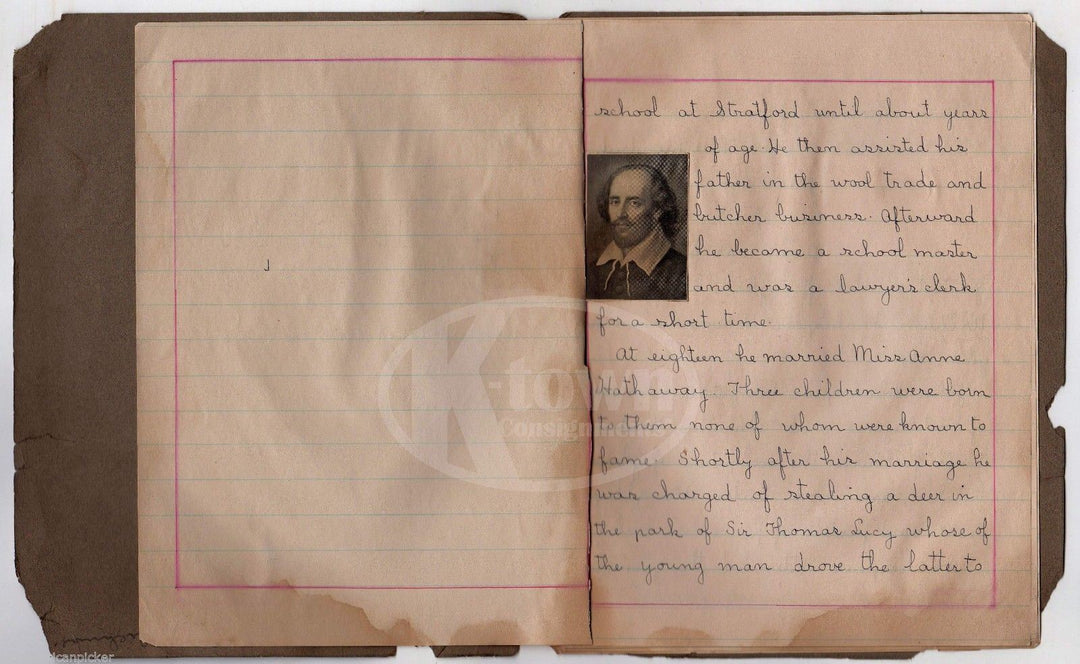 school at Stratford until about years
of age. He then assisted his
father in the wool trade and
butcher business. Afterward
he became a school master
and was a lawyer's clerk
for a short time.
At eighteen he married Miss Anne
Hathaway. Three children were born
to them none of whom were known to
fame. Shortly after his marriage he
was charged of stealing a deer in
the park of Sir Thomas Lucy whose of
the young man drove the latter to
K-town
Consignments
icanpicker